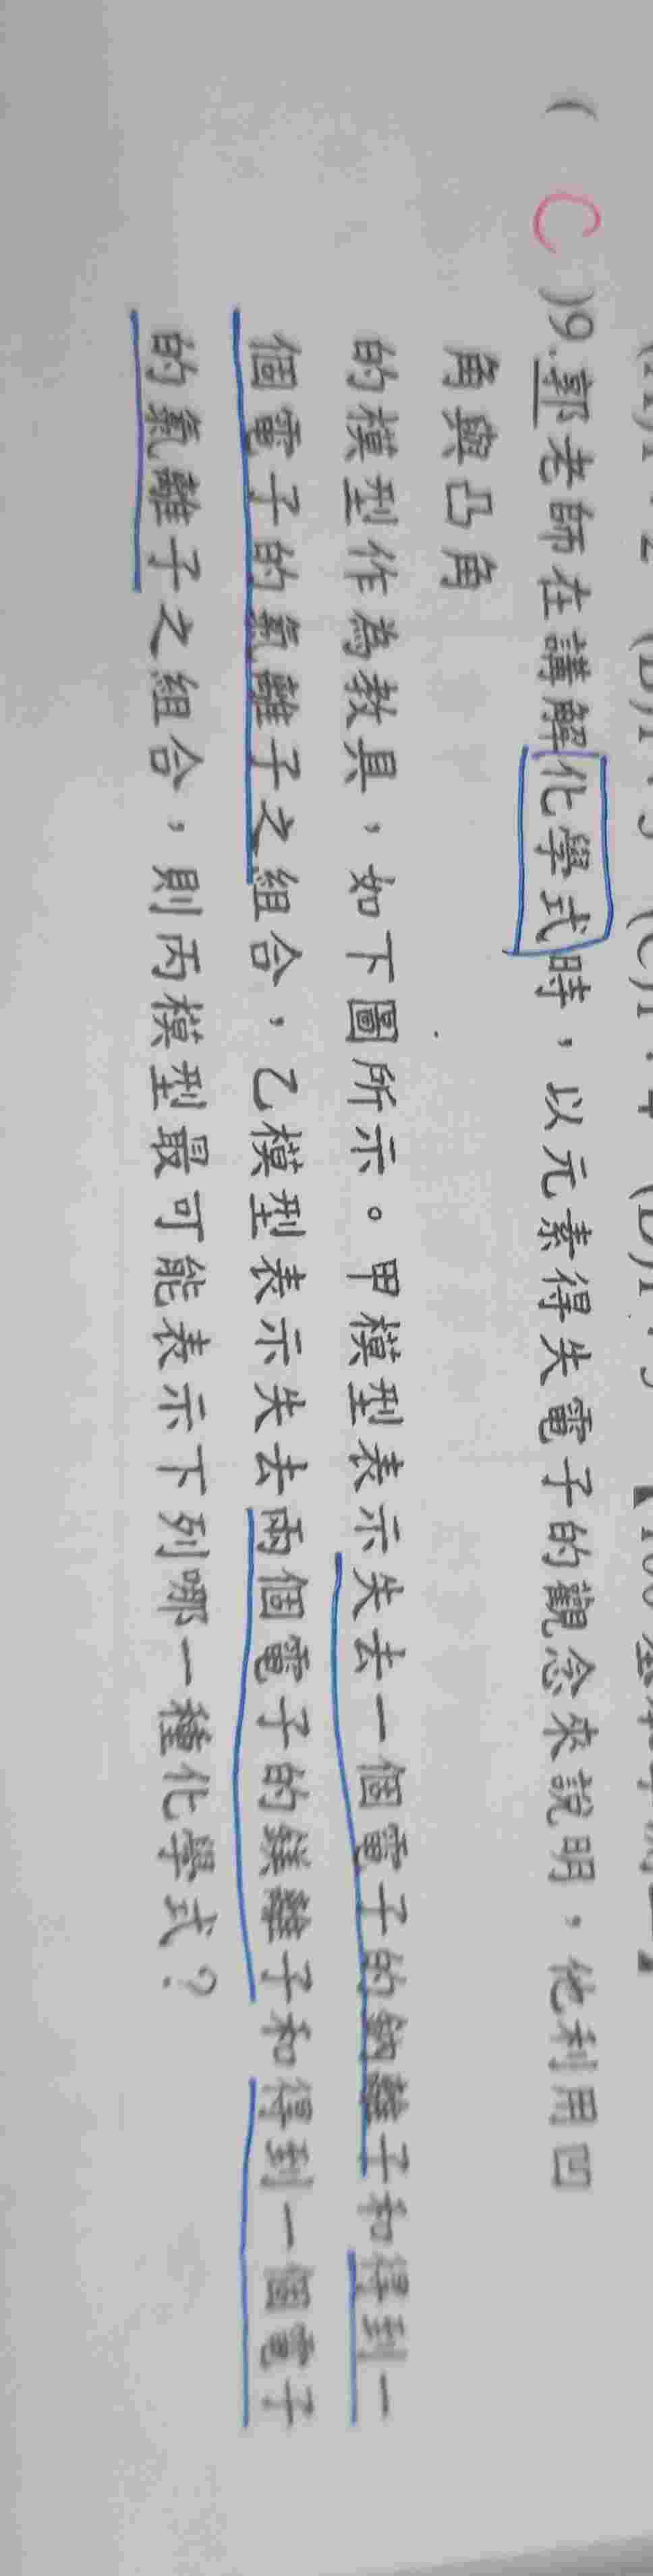 ( C )9.郭老師在講解化學式時，以元素得失電子的觀念來說明，他利用凹
角與凸角
的模型作為教具，如下圖所示。甲模型表示失去一個電子的鈉離子和得到一
個電子的氯離子之組合，乙模型表示失去兩個電子的鎂離子和得到一個電子
的氯離子之組合，則丙模型最可能表示下列哪一種化學式？